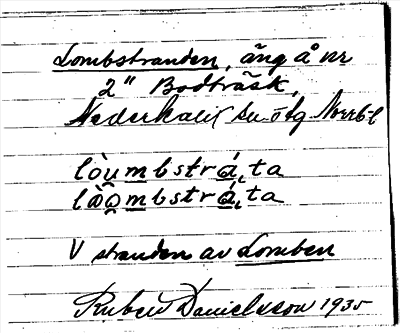 Lombstranden, äng å nr
2" Bodträsk,
Nederkalix sn. ötg Norrb.l
lòumbstrá,ta
lòo̯mbstrá,ta
V stranden av Lomben
Ruben Danielsson 1935